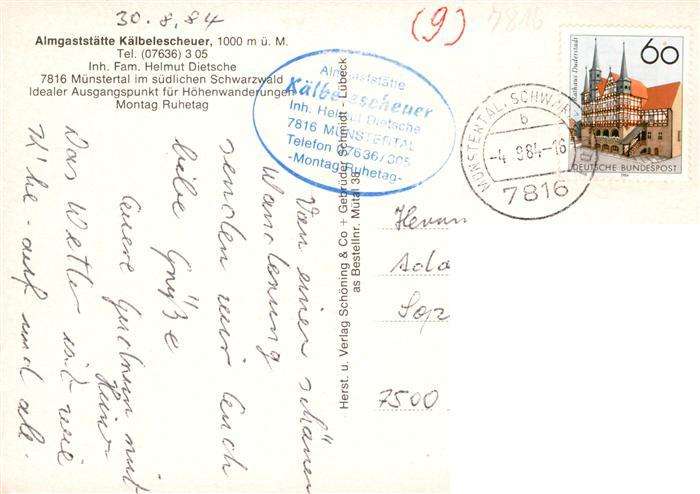 30.8.84
Almgaststätte Kälbelescheuer, 1000 m ü. M.
Tel. (07636) 3 05
Inh. Fam. Helmut Dietsche
7816 Münstertal im südlichen Schwarzwald
Idealer Ausgangspunkt für Höhenwanderungen
Montag Ruhetag
Von einer schönen
Wanderung
senden wir Euch
liebe Grüße
Euere Gudrun mit
Das Wetter
auf und ab.
Herst. u. Verlag Schöning & Co + Gebrüder Schmidt - Lübeck
as Bestellnr. Mütal 38
Almgaststätte
Kälbelescheuer
Inh. Helmut Dietsche
7816 MÜNSTERTAL
Telefon 07636/305
-Montag Ruhetag-
(9)
7816
MÜNSTERTAL, SCHWARZW
b
-4.-9.84-16
7816
60
Rathaus Duderstadt
DEUTSCHE BUNDESPOST
1984
Herrn
7500